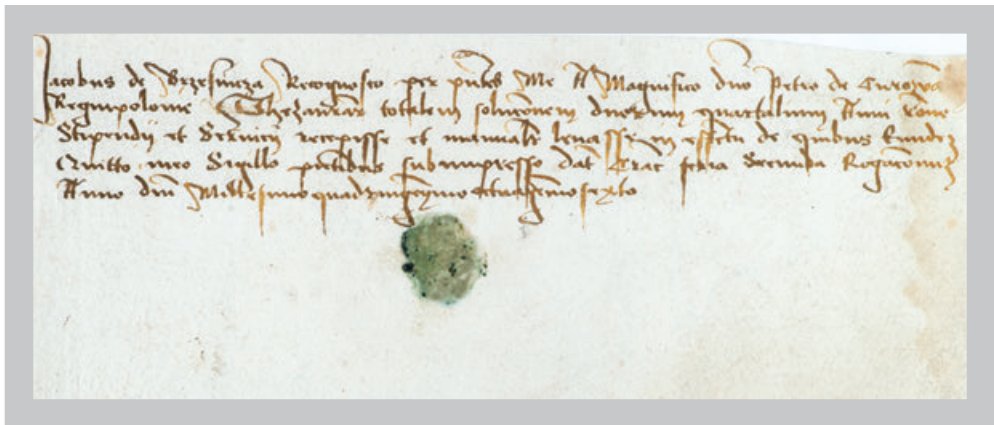 Jacobus de Brzesnicza Recognosco per pntes Me A Magnifico dno Petro de Curozwa
Regnipolonie Thezaurar totalem soluconem duorum quartalium Anni
Stipendii et Servicii recepisse et manualr levasse in effectu de quibus
Quitto meo Sigillo pntibus subimpresso dat Crac feria Secunda Rogaconum
Anno dni Millesimo quadringentesimo octuagesimo sexto